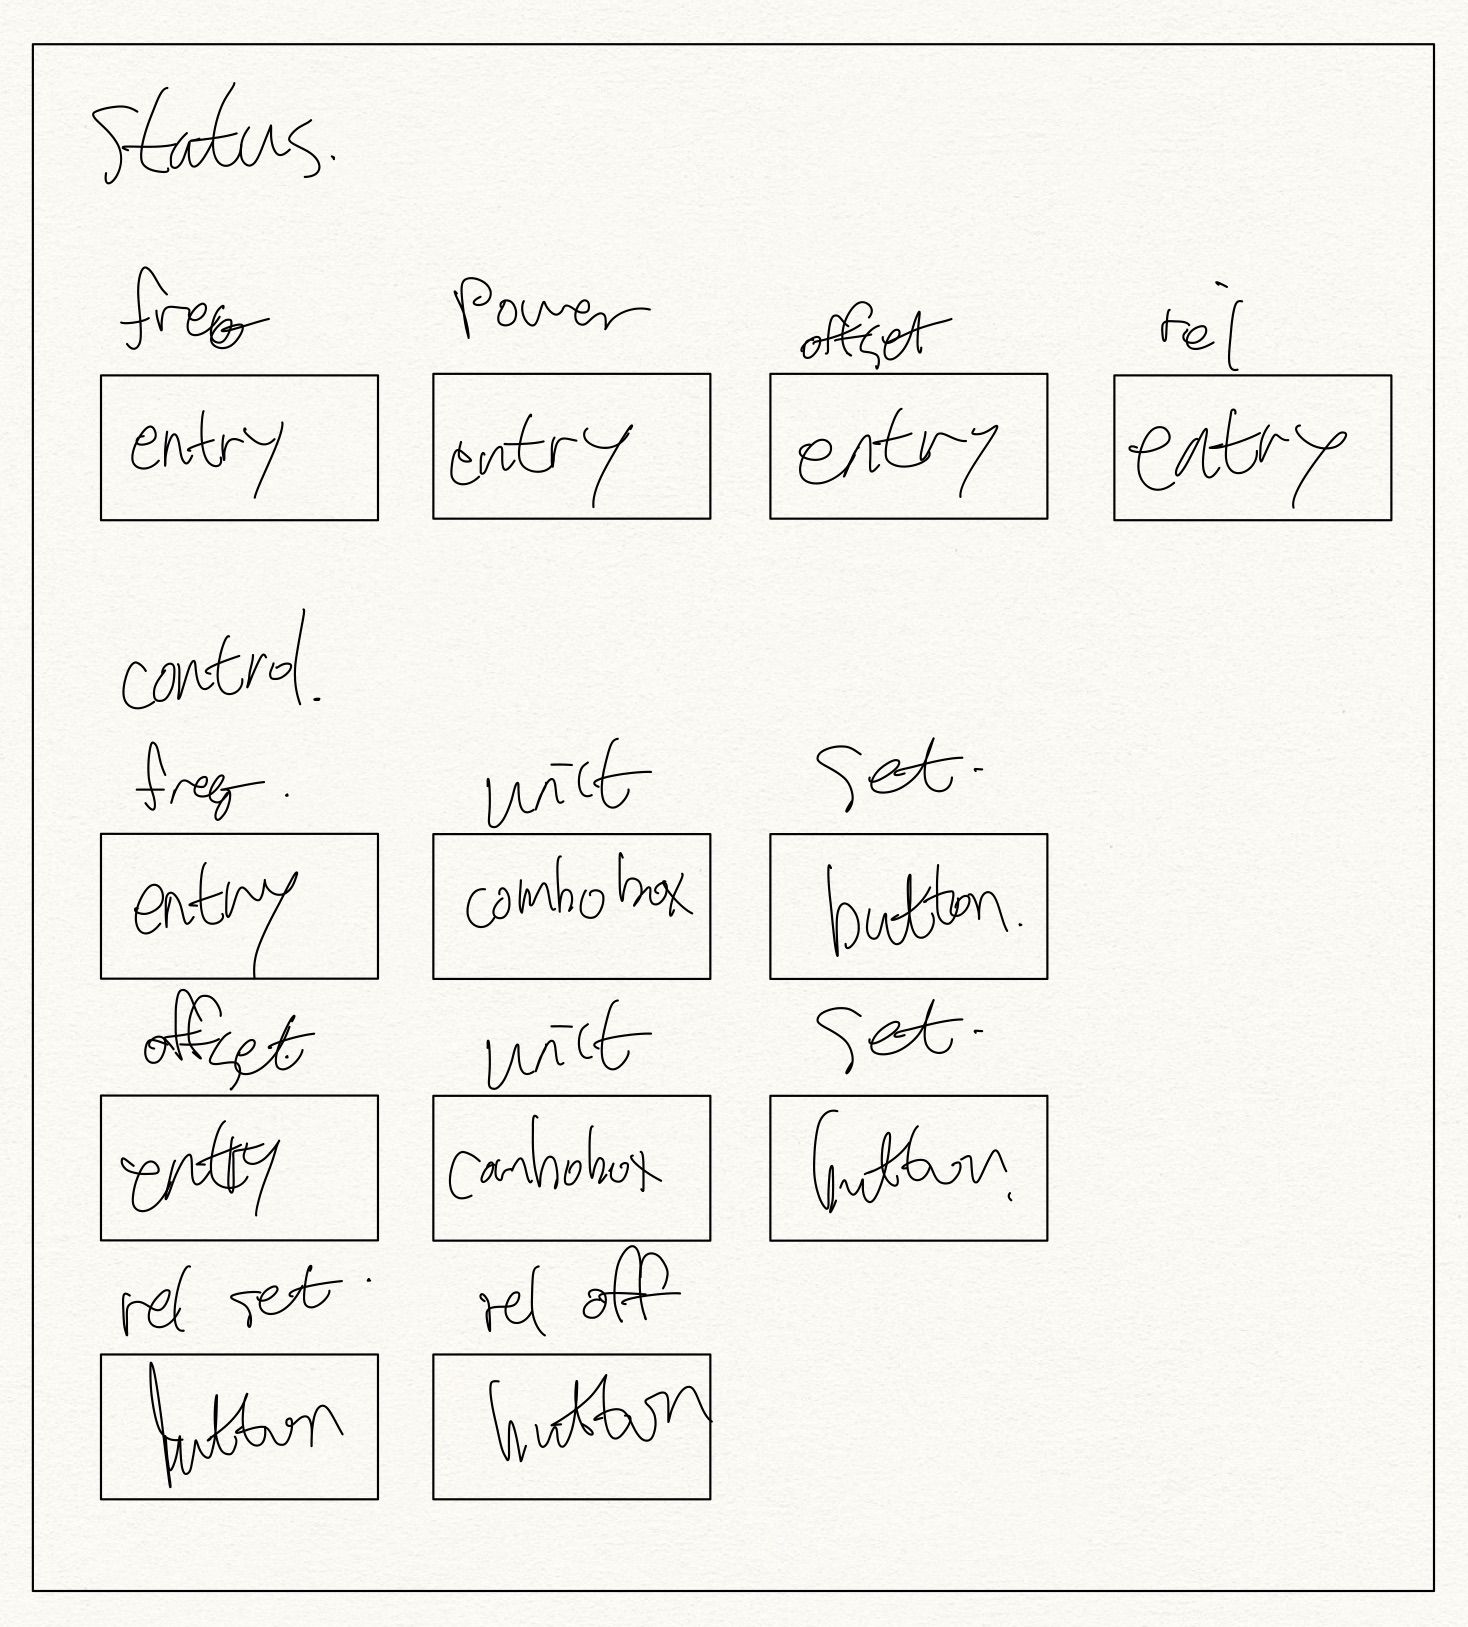 Status.
freq power offset rel
entry entry entry entry
control.
freq. unit set.
entry combobox button.
offset unit set.
entry combobox button.
rel set. rel off
button button